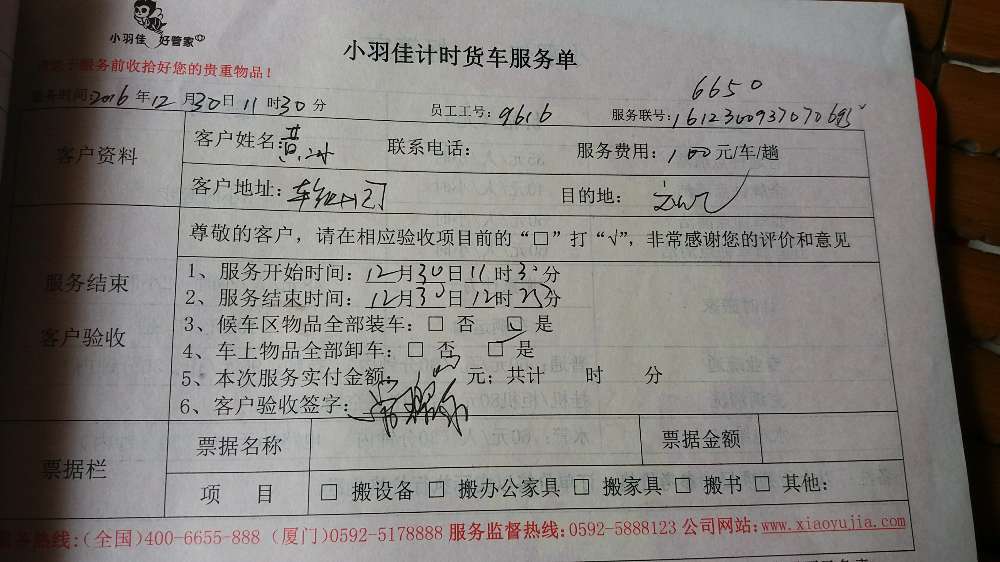 小羽佳 好管家
小羽佳计时货车服务单
服务前收拾好您的贵重物品！
6650
服务时间:2016年12月30日11时30分 员工工号:9616 服务联号:161230093707069
客户资料
客户姓名:黄 联系电话: 服务费用:100元/车/趟
客户地址: 目的地:
服务结束
客户验收
尊敬的客户，请在相应验收项目前的“□”打“√”，非常感谢您的评价和意见
1、服务开始时间：12月30日11时30分
2、服务结束时间：12月30日12时 分
3、候车区物品全部装车：□ 否 □ 是
4、车上物品全部卸车：□ 否 □ 是
5、本次服务实付金额: 100 元；共计 时 分
6、客户验收签字:
票据栏
票据名称 票据金额
项 目 □ 搬设备 □ 搬办公家具 □ 搬家具 □ 搬书 □ 其他:
服务热线:(全国)400-6655-888 (厦门)0592-5178888 服务监督热线:0592-5888123 公司网站:www.xiaoyujia.com